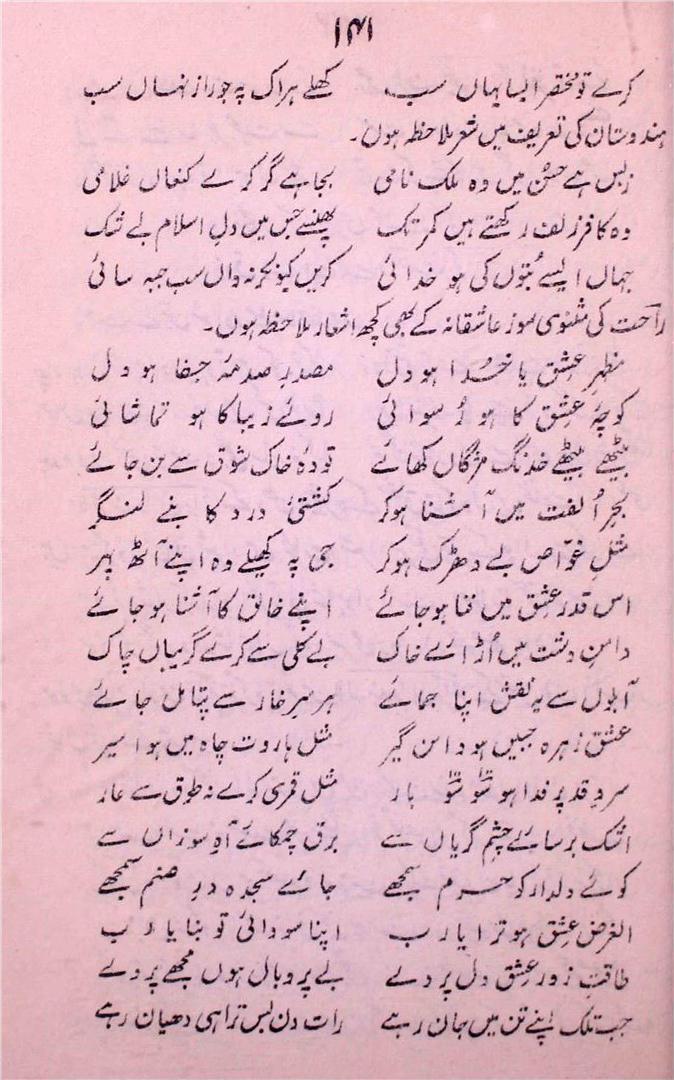 ۱۴۱
کرے تو مختصر ایسا یہاں سب کھلے ہراک پہ جو راز نہاں سب
ہندوستان کی تعریف میں شعر ملاحظہ ہوں۔
زبس ہے حسُن میں وہ ملک نامی بجا ہے گر کرے کنعاں غلامی
وہ کافر زلف رکھتے ہیں کمر تک پھنسے جس میں دلِ اسلام بے شک
جہاں ایسے بُتوں کی ہو خدائی کریں کیونکر نہ واں سب جبہ سائی
راحت کی مثنوی سوز عاشقانہ کے بھی کچھ اشعار ملاحظہ ہوں۔
مظہرِ عشق یا خُدا ہو دل مصدرِ صدمۂ جفا ہو دل
کوچۂ عشق کا ہو رُسوائی روئے زیبا کا ہو تماشائی
بیٹھے بیٹھے خدنگ مژگاں کھائے تودۂ خاک شوق سے بن جائے
بحرِ اُلفت میں آشنا ہوکر کشتئ درد کا بنے لنگر
مثلِ غوّاص بے دھڑک ہوکر جی پہ کھیلے وہ اپنے آٹھ پہر
اس قدر عشق میں فنا ہوجائے اپنے خالق کا آشنا ہو جائے
دامنِ دشت میں اُڑائے خاک بے کلی سے کرے گریباں چاک
آبلوں سے یہ نقش اپنا جمائے ہر سرِ خار سے پتا مل جائے
عشق زہرہ جبیں ہو دامن گیر مثل ہاروت چاہ میں ہو اسیر
سرو قد پر فدا ہو سَو سَو بار مثل قمری کرے نہ طوق سے عار
اشک برسائے چشمِ گریاں سے برق چمکائے آہِ سوزاں سے
کوئے دلدار کو حرم سمجھے جائے سجدہ درِ صنم سمجھے
الغرض عشق ہو ترا یارب اپنا سودائی تو بنا یارب
طاقتِ زورِ عشق دل پر دے بے پر و بال ہوں مجھے پر دے
جب تلک اپنے تن میں جان رہے رات دن بس ترا ہی دھیان رہے